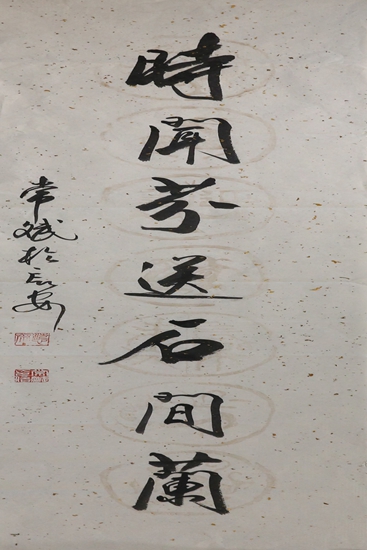 時聞芬送石間蘭
常斌於長安